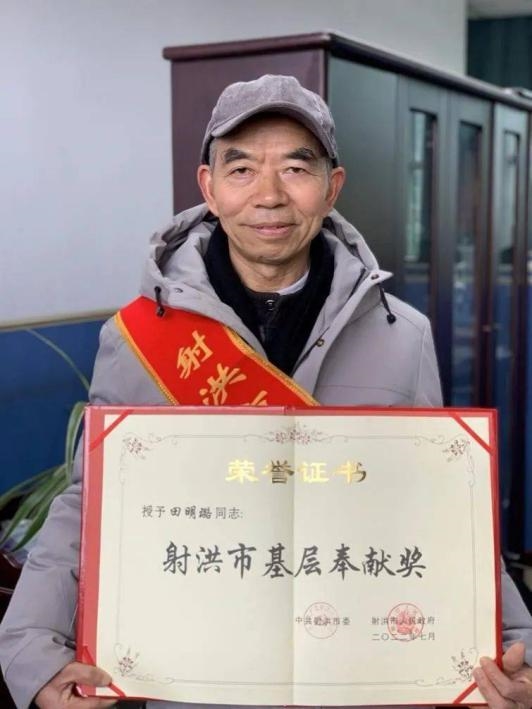 射洪
荣誉证书
授予田明璐同志:
射洪市基层奉献奖
中共射洪市委 射洪市人民政府
二〇二一年七月